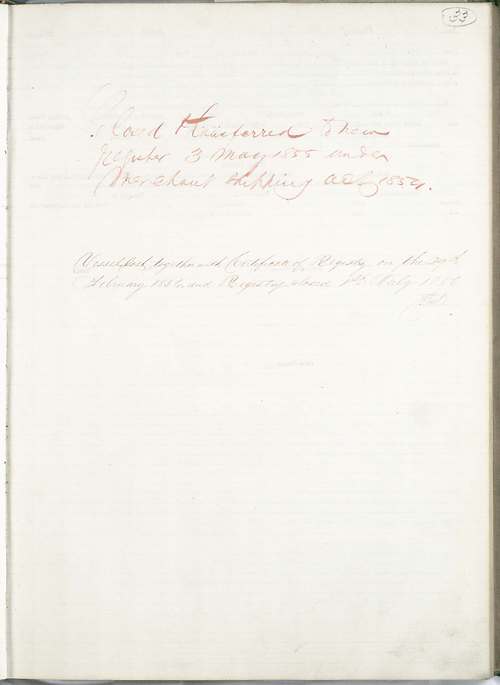 33
Closed & Transferred to new
Register 3 May 1855 under
Merchant Shipping Act 1854.
Vessel lost, together with Certificate of Registry on the
February 1856, and Registry closed July 1856